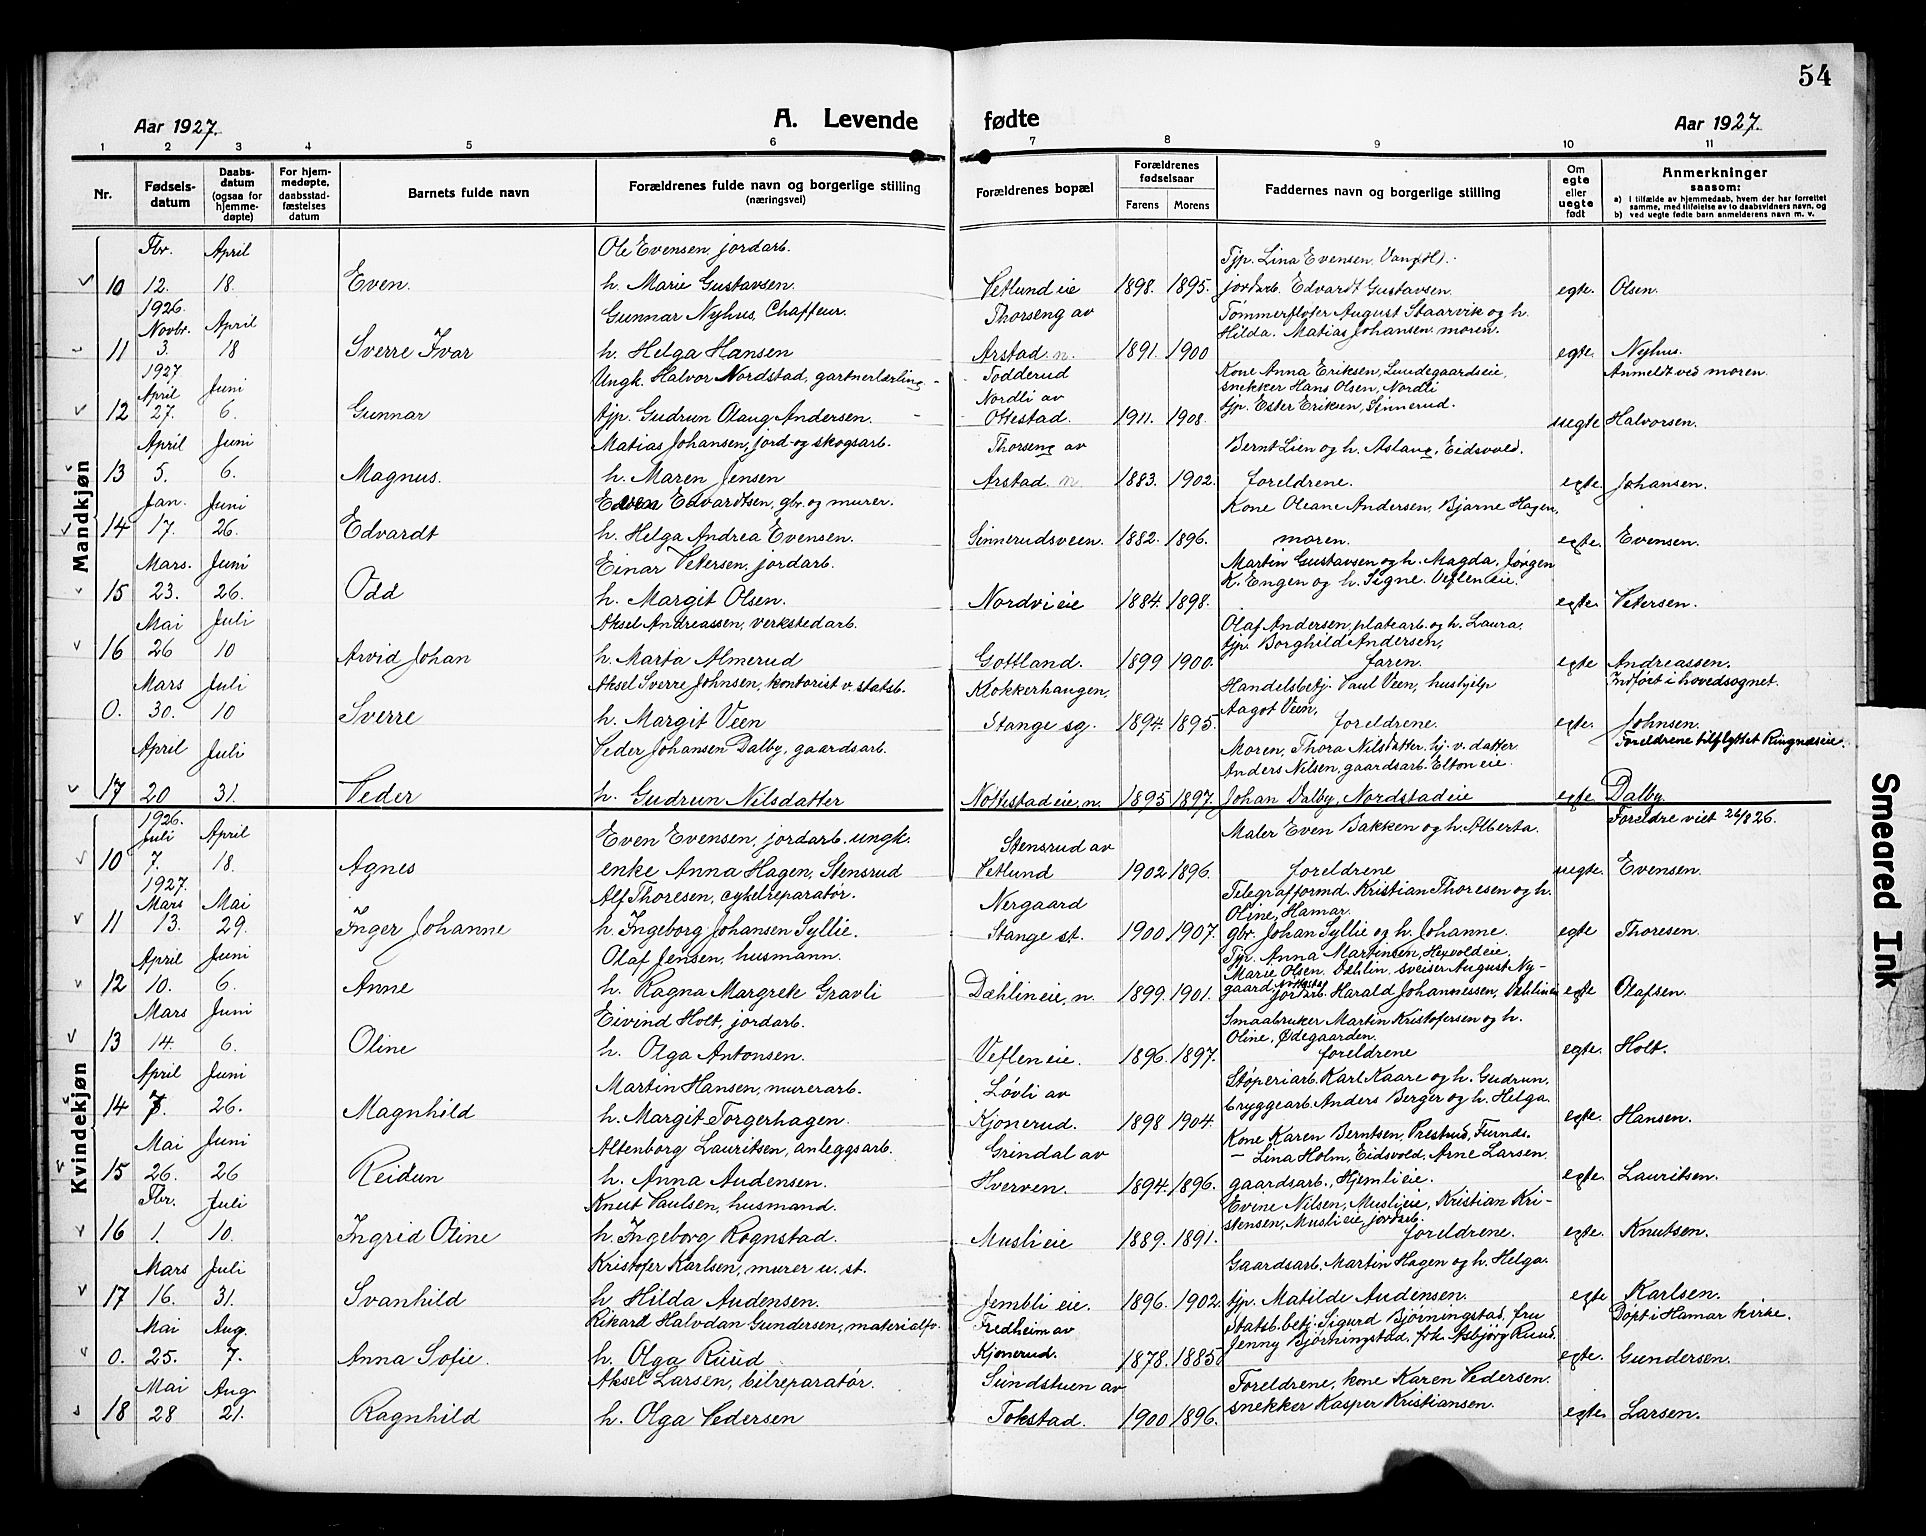 54
Aar 1927.
A. Levende fødte
Aar 1927.
1 2 3 4 5 6 7 8 9 10 11
Nr.
Fødsels-
datum
Daabs-
datum
(ogsaa for
hjemme-
døpte)
For hjem-
medøpte,
daabsstad-
fæstelses
datum
Barnets fulde navn
Forældrenes fulde navn og borgerlige stilling
(næringsvei)
Forældrenes bopæl
Forældrenes
fødselsaar
Farens Morens
Faddernes navn og borgerlige stilling
Om
egte
eller
uegte
født
Anmerkninger
saasom:
a) i tilfælde av hjemmedaab, hvem der har forrettet
samme, med tilføielse av to daabsvidners navn, og
b) ved uegte fødte barn anmelderens navn m. v.
Mandkjøn
Fbr. April Ole Evensen, jordarb. Tjp. Lina Evensen, Vang H.
10 12. 18. Even. h. Marie Gustavsen. Vetlund eie 1898. 1895. jordarb. Edvardt Gustavsen. egte. Olsen.
1926. Gunnar Nyhus, Chaffeur. Thorseng av Tømmerfløter August Staarvik og h.
Novbr. April Hilda. Matias Johansen. moren.
11 3. 18 Sverre Ivar h. Helga Hansen Arstad. n. 1891. 1900 egte. Nyhus.
1927 Ungk. Halvor Nordstad, gartnerlærling Todderud Kone Anna Eriksen, Lundegaardseie, Anmeldt ved moren.
April Juni Nordli av snekker Hans Olsen, Nordli
12 27. 6. Gunnar tjp. Gudrun Olaug Andersen. Ottestad. 1911. 1908. tjp. Ester Eriksen, Sinnerud. uegte Halvorsen.
April Juni Matias Johansen, jord- og skogsarb. Thorseng av Bernt Lien og h. Aslaug, Eidsvold.
13 5. 6. Magnus. h. Maren Jensen Arstad n. 1883. 1902. foreldrene. egte. Johansen.
Jan. Juni Even Edvardtsen, gbr. og murer. Kone Oleane Andersen, Bjarne Hagen,
14 17. 26. Edvardt h. Helga Andrea Evensen. Sinnerudsveen. 1882. 1896. moren. egte. Evensen.
Mars. Juni Einar Petersen, jordarb. Martin Gustavsen og h. Magda, Jørgen
K. Engen og h. Signe. Veflen eie.
15 23. 26. Odd h. Margit Olsen. Nordvi eie 1884. 1898. egte. Petersen.
Mai Juli Aksel Andreassen, verkstedarb. Olaf Andersen, platearb. og h. Laura,
tjp. Borghild Andersen,
16 26 10 Arvid Johan h. Marta Almerud Gottland. 1899 1900. faren. egte Andreassen.
Mars Juli Aksel Sverre Johnsen, kontorist v. statsb. Klokkerhaugen, Handelsbetj. Paul Veen, hushjelp Indført i hovedsognet.
Aagot Veen,
0. 30. 10 Sverre h. Margit Veen Stange sg. 1894. 1895. foreldrene. egte. Johnsen.
April Juli Peder Johansen Dalby, gaardsarb. Moren, Thora Nilsdatter, hj. v. datter Foreldrene tilflyttet Ringnæs eie.
Anders Nilsen, gaardsarb. Elton eie.
17 20 31. Peder h. Gudrun Nilsdatter Nottestad eie, n. 1895 1897. Johan Dalby, Nordstad eie egte. Dalby.
Kvindekjøn
1926. Foreldre viet 26/8 26.
Juli April Even Evensen, jordarb. ungk. Stensrud av Maler Even Bakken og h. Alberta.
10 7. 18. Agnes enke Anna Hagen, Stensrud Vetlund 1902 1896. foreldrene uegte. Evensen.
1927. Alf Thoresen, cykelreparatør. Nergaard Telegrafformd. Kristian Thoresen og h.
Mars Mai Oline, Hamar.
11 13. 29. Inger Johanne h. Ingeborg Johansen Syllie. Stange st. 1900 1907. gbr. Johan Syllie og h. Johanne. egte Thoresen.
April Juni Olaf Jensen, husmann. Tjp. Anna Martinsen, Hexvoldeie,
Marie Olsen, Dæhlin, sveiser August Ny-
12 10. 6. Anne h. Ragna Margrete Gravli Dæhlin eie, n. 1899. 1901. gaard, Nottestad jordarb. Harald Johannessen, Dæhlin eie egte Olafsen.
Mars Juni Eivind Holt, jordarb. Smaabruker Martin Kristofersen og h.
Oline, Ødegaarden.
13 14. 6. Oline h. Olga Antonsen. Veflen eie. 1896. 1897. foreldrene egte. Holt.
April Juni Martin Hansen, murerarb. Løvli av Støperiarb. Karl Kaare og h. Gudrun,
14 7. 26. Magnhild h. Margit Torgerhagen. Kjonerud. 1898 1904. bryggearb. Anders Berger og h. Helga. egte. Hansen.
Mai Juni Altenborg Lauritsen, anleggsarb. Grindal av Kone Karen Berntsen, Prestrud, Furnes.
— Lina Holm, Eidsvold, Arne Larsen
15 26. 26 Reidun h. Anna Audensen. Hverven. 1894. 1896. gaardsarb., Hjemli eie. egte. Lauritsen.
Fbr. Juli Knut Paulsen, husmand. Evine Nilsen, Musli eie, Kristian Kri-
stensen, Musli eie, jordarb.
16 1. 10. Ingrid Oline h. Ingeborg Rognstad. Musli eie 1889. 1891. foreldrene. egte. Knutsen.
Mars Juli Kristofer Karlsen, murer u. st. Gaardsarb. Martin Hagen og h. Helga.
17 16. 31. Svanhild h. Hilda Audensen. Jembli eie. 1896. 1902. tjp. Matilde Audensen. egte Karlsen.
Mai Aug. Rikard Halvdan Gundersen, materialfv. Fredheim av statsb. betj. Sigurd Bjørningstad, fru Døpt i Hamar kirke.
Jenny Bjørningstad, frk. Asbjørg Ruud.
0. 25. 7. Anna Sofie. h. Olga Ruud Kjonerud. 1878. 1885. egte. Gundersen.
Mai Aug. Aksel Larsen, bilreparatør. Sundstuen av Foreldrene, kone Karen Pedersen.
18 28 21. Ragnhild h. Olga Pedersen Tokstad. 1900 1896. snekker Kasper Kristiansen. egte. Larsen.
Smeared Ink